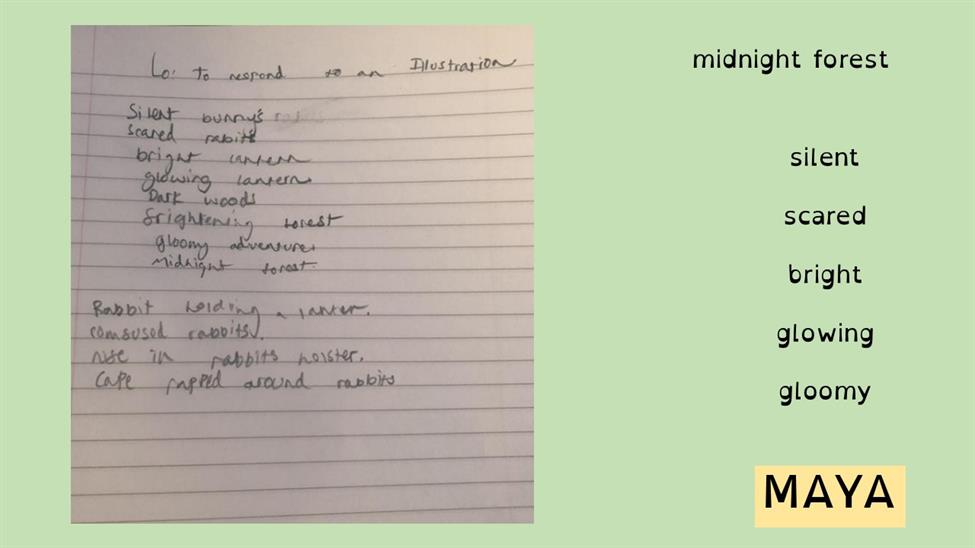 Lo: To respond to an Illustration
Silent bunny's
scared rabits
bright lantern
glowing lantern
Dark woods
frightening forest
gloomy adventure
Midnight forest
Rabbit holding a lanter.
comsused rabbits.
in rabbits holster.
Cape rapped around rabbits
midnight forest
silent
scared
bright
glowing
gloomy
MAYA